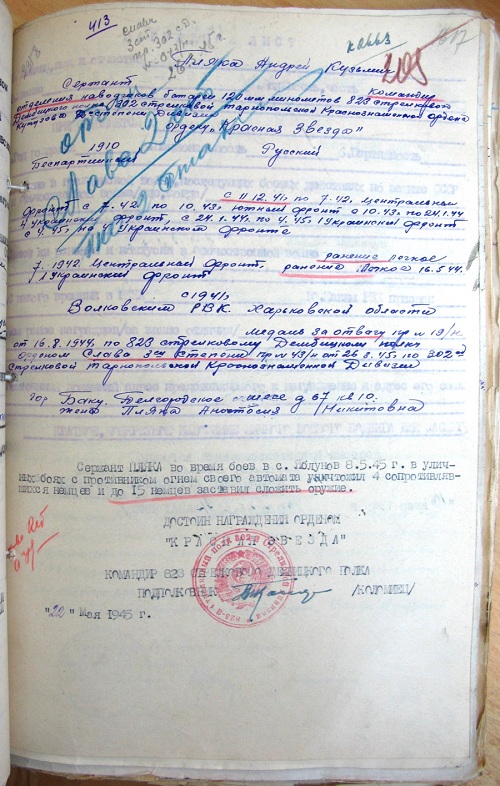 413
каввз
205
Пляка Андрей Кузьмич
Сержант командир
отделения наводчиков батареи 120 мм минометов 823 стрелкового
Дембицкого полка 302 стрелковой тарнопольской Краснознаменной ордена
Кутузова 2 степени Дивизии
Орден "Красная Звезда"
1910 Русский
Беспартийный
с 11.12.41г по 7.42, центральный
фронт с 7.42 по 10.43, южный фронт с 10.43 по 24.1.44
4 украинский фронт, с 24.1.44 по 4.45, 1 Украинский фронт
с 4.45, по 4 Украинском фронте
7.1942 Центральный фронт, ранение легкое
1 Украинский фронт ранение легкое 16.5.44.
с 1941г
Волковским РВК Харьковской области
медаль за отвагу пр м 19/н
от 16.8.1944г по 823 стрелковому Дембицкому полку
орденом Слава 3ей степени пр м 43/н от 26.3.45г по 302ой
Стрелковой тарнопольской Краснознаменной Дивизии
гор Баку. Белгородское шоссе д 67 кв 10.
жена Пляка Анастасия Никитовна
Сержант ПЛЯКА во время боев в с. Яблунов 8.5.45 г. в улич-
ных боях с противником огнем своего автомата уничтожил 4 сопротивляв-
шихся немцев и до 15 немцев заставил сложить оружие.
ДОСТОИН НАГРАЖДЕНИЯ ОРДЕНОМ
"КРАСНАЯ ЗВЕЗДА"
КОМАНДИР 823 СТРЕЛКОВОГО ДЕМБИЦКОГО ПОЛКА
ПОДПОЛКОВНИК /КОЛОМИЕЦ/
"22" Мая 1945 г.